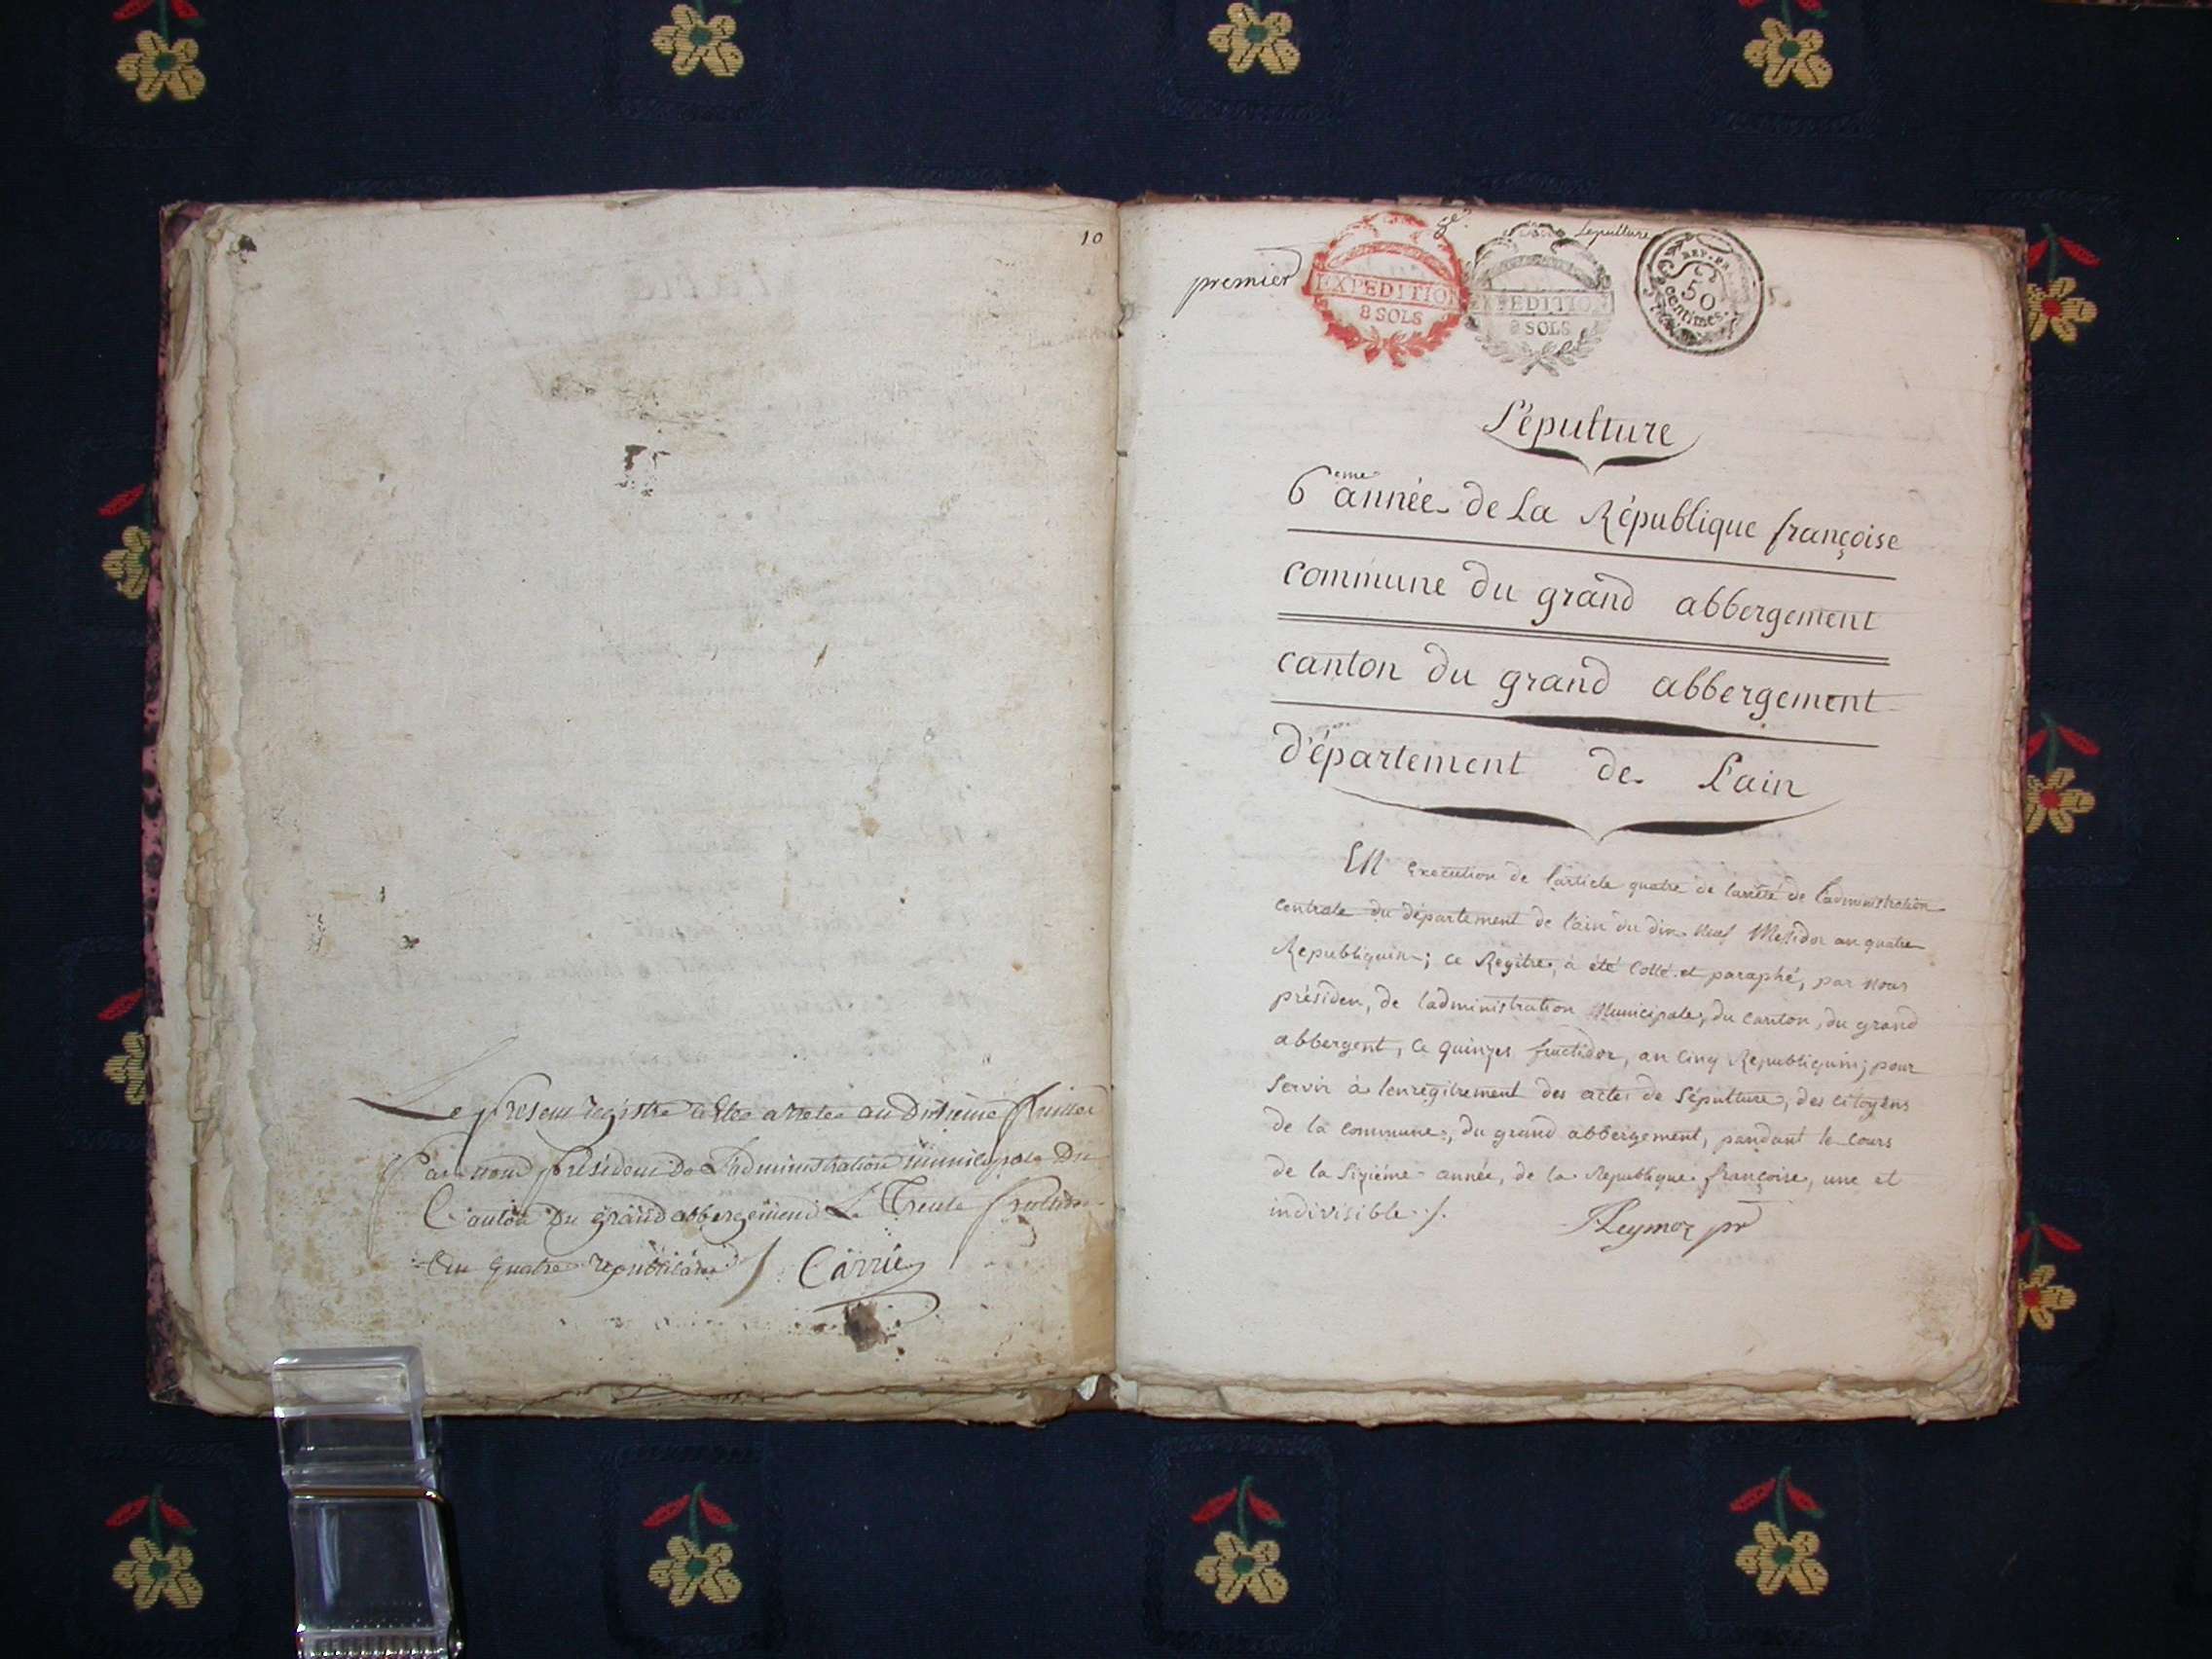 10
Le present registre a Etée arretee au Dixieme feuillet
Par nous président De L'administration municipale Du
Canton Du grand abbergement Le Trente fructidor
An quatre republicain / Carrié
premier
Sepulture
EXPEDITION
8 SOLS
EXPEDITION
8 SOLS
REP. FRA
50
centimes.
S'épulture
6eme année de La République françoise
commune du grand abbergement
canton du grand abbergement
d'épartement de L'ain
EN Execution de l'article quatre de l'arrêté de l'administration
Centrale du département de l'ain du dix neuf Mesidor an quatre
Republiquin; ce Regitre, à été Cotté et paraphé, par nous
présiden, de l'administration Municipale, du Canton, du grand
abbergent, ce quinzes fructidor, an Cinq Republiquin; pour
Servir à l'enregitrement des actes de Sépulture, des citoyens
de la commune, du grand abbergement, pandant le cours
de la Sixiéme année, de la Republique françoise, une et
indivisible ./. Reymoz pr